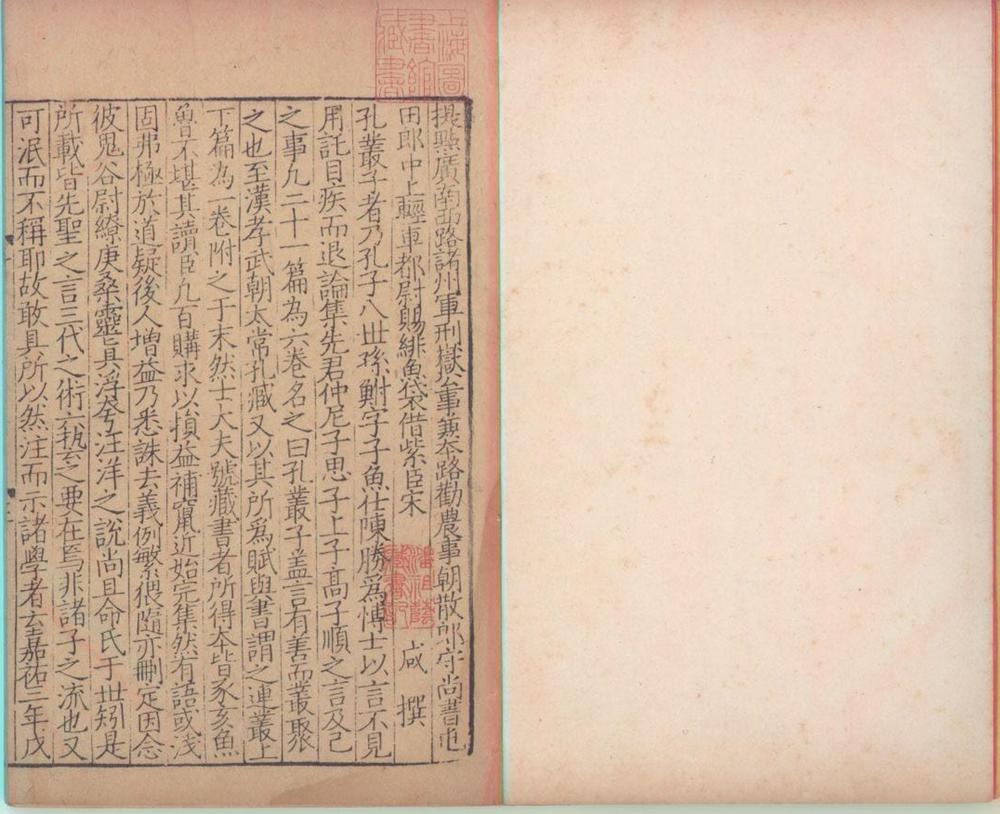 提點廣南西路諸州軍刑獄公事兼本路勸農事朝散郎守尚書屯
田郎中上輕車都尉賜緋魚袋借紫臣宋 咸 撰
孔叢子者乃孔子八世孫鮒字子魚仕陳勝為博士以言不見
用託目疾而退論集先君仲尼子思子上子高子順之言及己
之事凡二十一篇為六卷名之曰孔叢子盖言有善而叢聚
之也至漢孝武朝太常孔臧又以其所為賦與書謂之連叢上
下篇為一卷附之于末然士大夫號藏書者所得本皆豕亥魚
魯不堪其讀臣凡百購求以損益補竄近始完集然有語或淺
固弗極於道疑後人增益乃悉誅去義例繁猥隨亦刪定因念
彼鬼谷尉繚庚桑靈真浮夸汪洋之說尚且命氏于世矧是
所載皆先聖之言三代之術六藝之要在焉非諸子之流也又
可泯而不稱耶故敢具所以然注而示諸學者云嘉祐三年戊
上海圖書館藏書
潘祖蔭藏書記